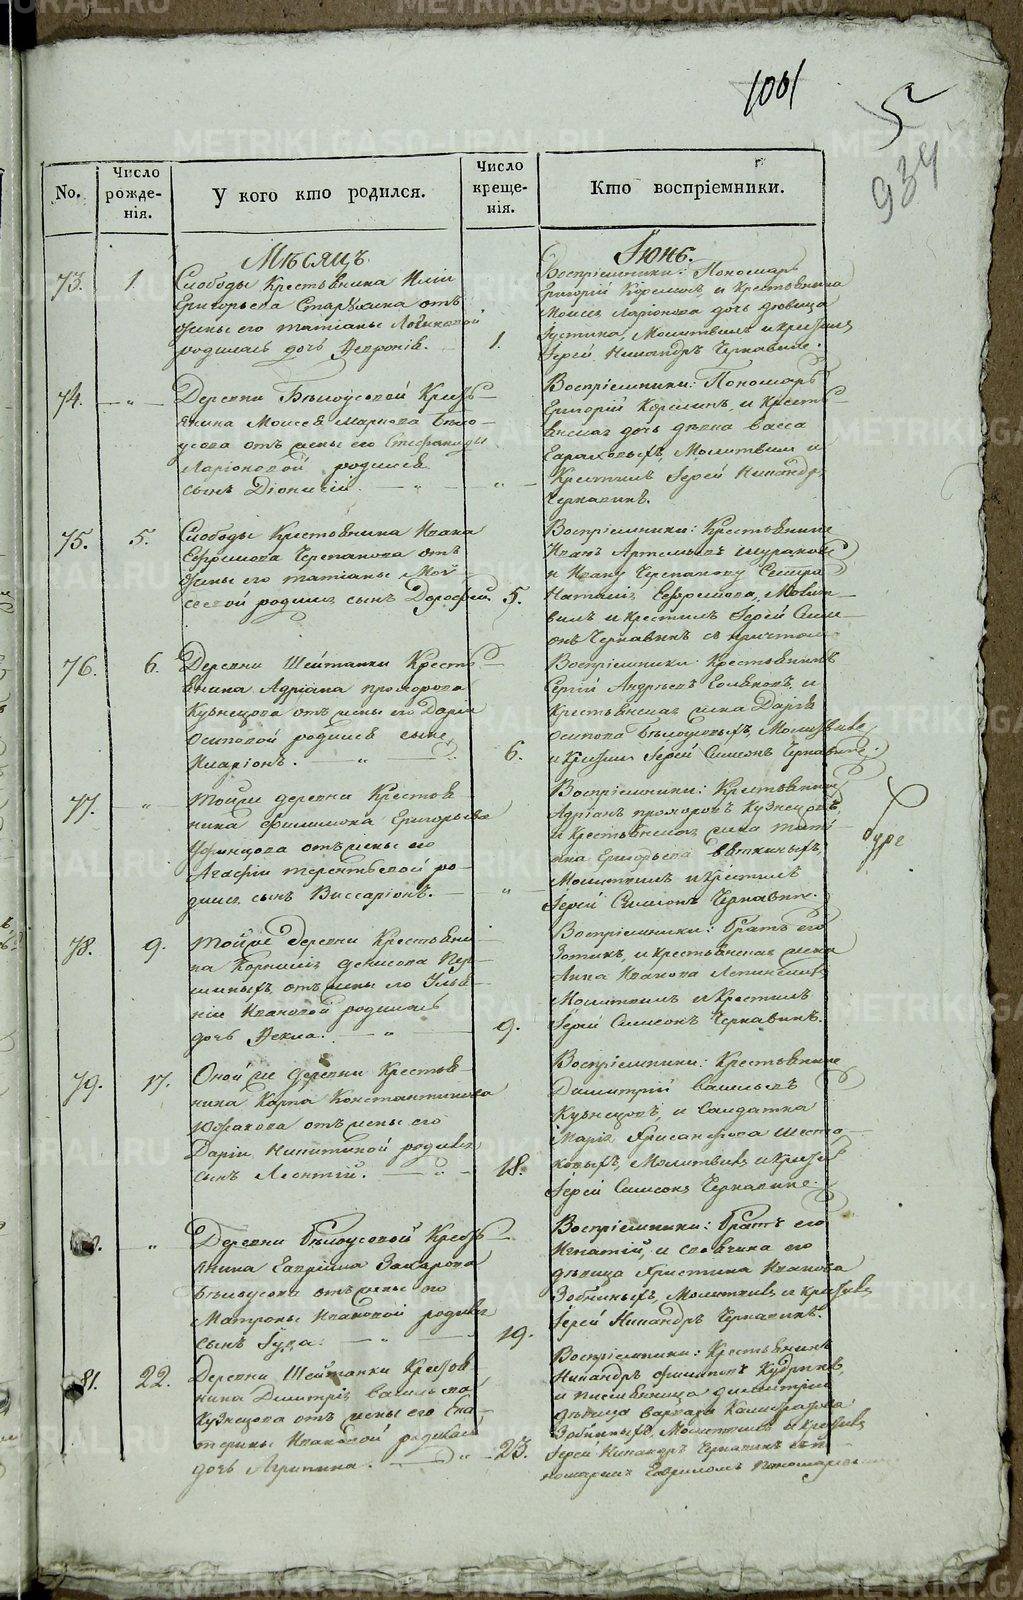 1001
5
934
No.
Число рожде-нія.
У кого кто родился.
Число креще-нія.
Кто воспріемники.
Мѣсяцъ
Іюнь.
73.
1.
Слободы Крестьянина Иліи
Григорьева Старѣхина отъ
жены его Татіаны
родилась дочь Ѳевронія.
1.
Воспріемники: Пономарь
Григорій и Крестьянина
Моисея Ларіонова дочь дѣвица
Іустина, Молитвилъ и крестилъ
Іерей Никандръ Чернавинъ.
74.
— „ —
Деревни Бѣлоусовой Кресть-
янина Моисея Маркова Бѣло-
усова отъ жены его Стефаниды
Ларіоновой родился
сынъ Діонисій. — „ —
„ —
Воспріемники: Пономарь
Григорій и Кресть-
янская дочь дѣвка Васса
Молитвилъ и
Крестилъ Іерей Никандръ
Чернавинъ.
75.
5.
Слободы Крестьянина Ивана
Ефремова Черепанова отъ
жены его Татіаны Мой-
сеевой родился сынъ Дорофей.
5.
Воспріемники: Крестьянинъ
Иванъ Артемьевъ
и Ивану Черепанову Сестра
Наталія Ефремова, Молит-
вилъ и крестилъ Іерей Сим-
онъ Чернавинъ съ причтомъ
76.
6.
Деревни Шейтанки Кресть-
янина Адріана Прохорова
Кузнецова отъ жены его Даріи
Осиповой родился сынъ
Иларіонъ. — „ —
6.
Воспріемники Крестьянинъ
Сергій Андреевъ и
Крестьянская жена Дарія
Осипова Бѣлоусовыхъ, Молитвилъ
и Крестилъ Іерей Симеонъ Чернавинъ.
77.
„
Тойже деревни Крестья-
нина Филимона Григорьева
отъ жены его
Агафіи Терентьевой ро-
дился сынъ Виссаріонъ. —
„
Воспріемники: Крестьянинъ
Адріанъ Прохоровъ Кузнецовъ,
и Крестьянская жена Тати-
яна Григорьева Вяткиныхъ,
Молитвилъ и Крестилъ
Іерей Симеонъ Чернавинъ.
78.
9.
Тойже Деревни Крестьяни-
на Корнилія Денисова Пер-
шиныхъ, отъ жены его Улья-
ніи Ивановой родилась
дочь Ѳекла. — „ —
9.
Воспріемники: братъ его
Зотикъ, и крестьянская жена
Анна Иванова
Молитвилъ и Крестилъ
Іерей Симеонъ Чернавинъ.
79.
17.
Оной же деревни Крестья-
нина Карпа Константинова
Южакова отъ жены его
Даріи Никитиной родился
сынъ Леонтій. — „ —
18.
Воспріемники: Крестьянинъ
Димитрій Васильевъ
Кузнецовъ, и Салдатка
Марія Хрисанфова Шесто-
ковыхъ, Молитвилъ и Крестилъ
Іерей Симеонъ Чернавинъ.
„
Деревни Бѣлоусовой Кресть-
янина Гавріила Захарова
Бѣлоусова отъ жены его
Матроны Ивановой родился
сынъ Іуда. — „ —
19.
Воспріемники: братъ его
Игнатій, и его
дѣвица Христина Иванова
Зобниныхъ, Молитвилъ и Крестилъ
Іерей Никандръ Чернавинъ.
81.
22.
Деревни Шейтанки Крестья-
нина Димитрія Васильева
Кузнецова отъ жены его Ека-
терины Ивановой родилась
дочь Агрипина. — „ —
23.
Воспріемники: Крестьянинъ
Никандръ Филиповъ Кудринъ,
и
дѣвица Варвара
Зобниныхъ Молитвилъ и Крестилъ
Іерей Никандръ Чернавинъ съ п-
номаремъ Гавриломъ